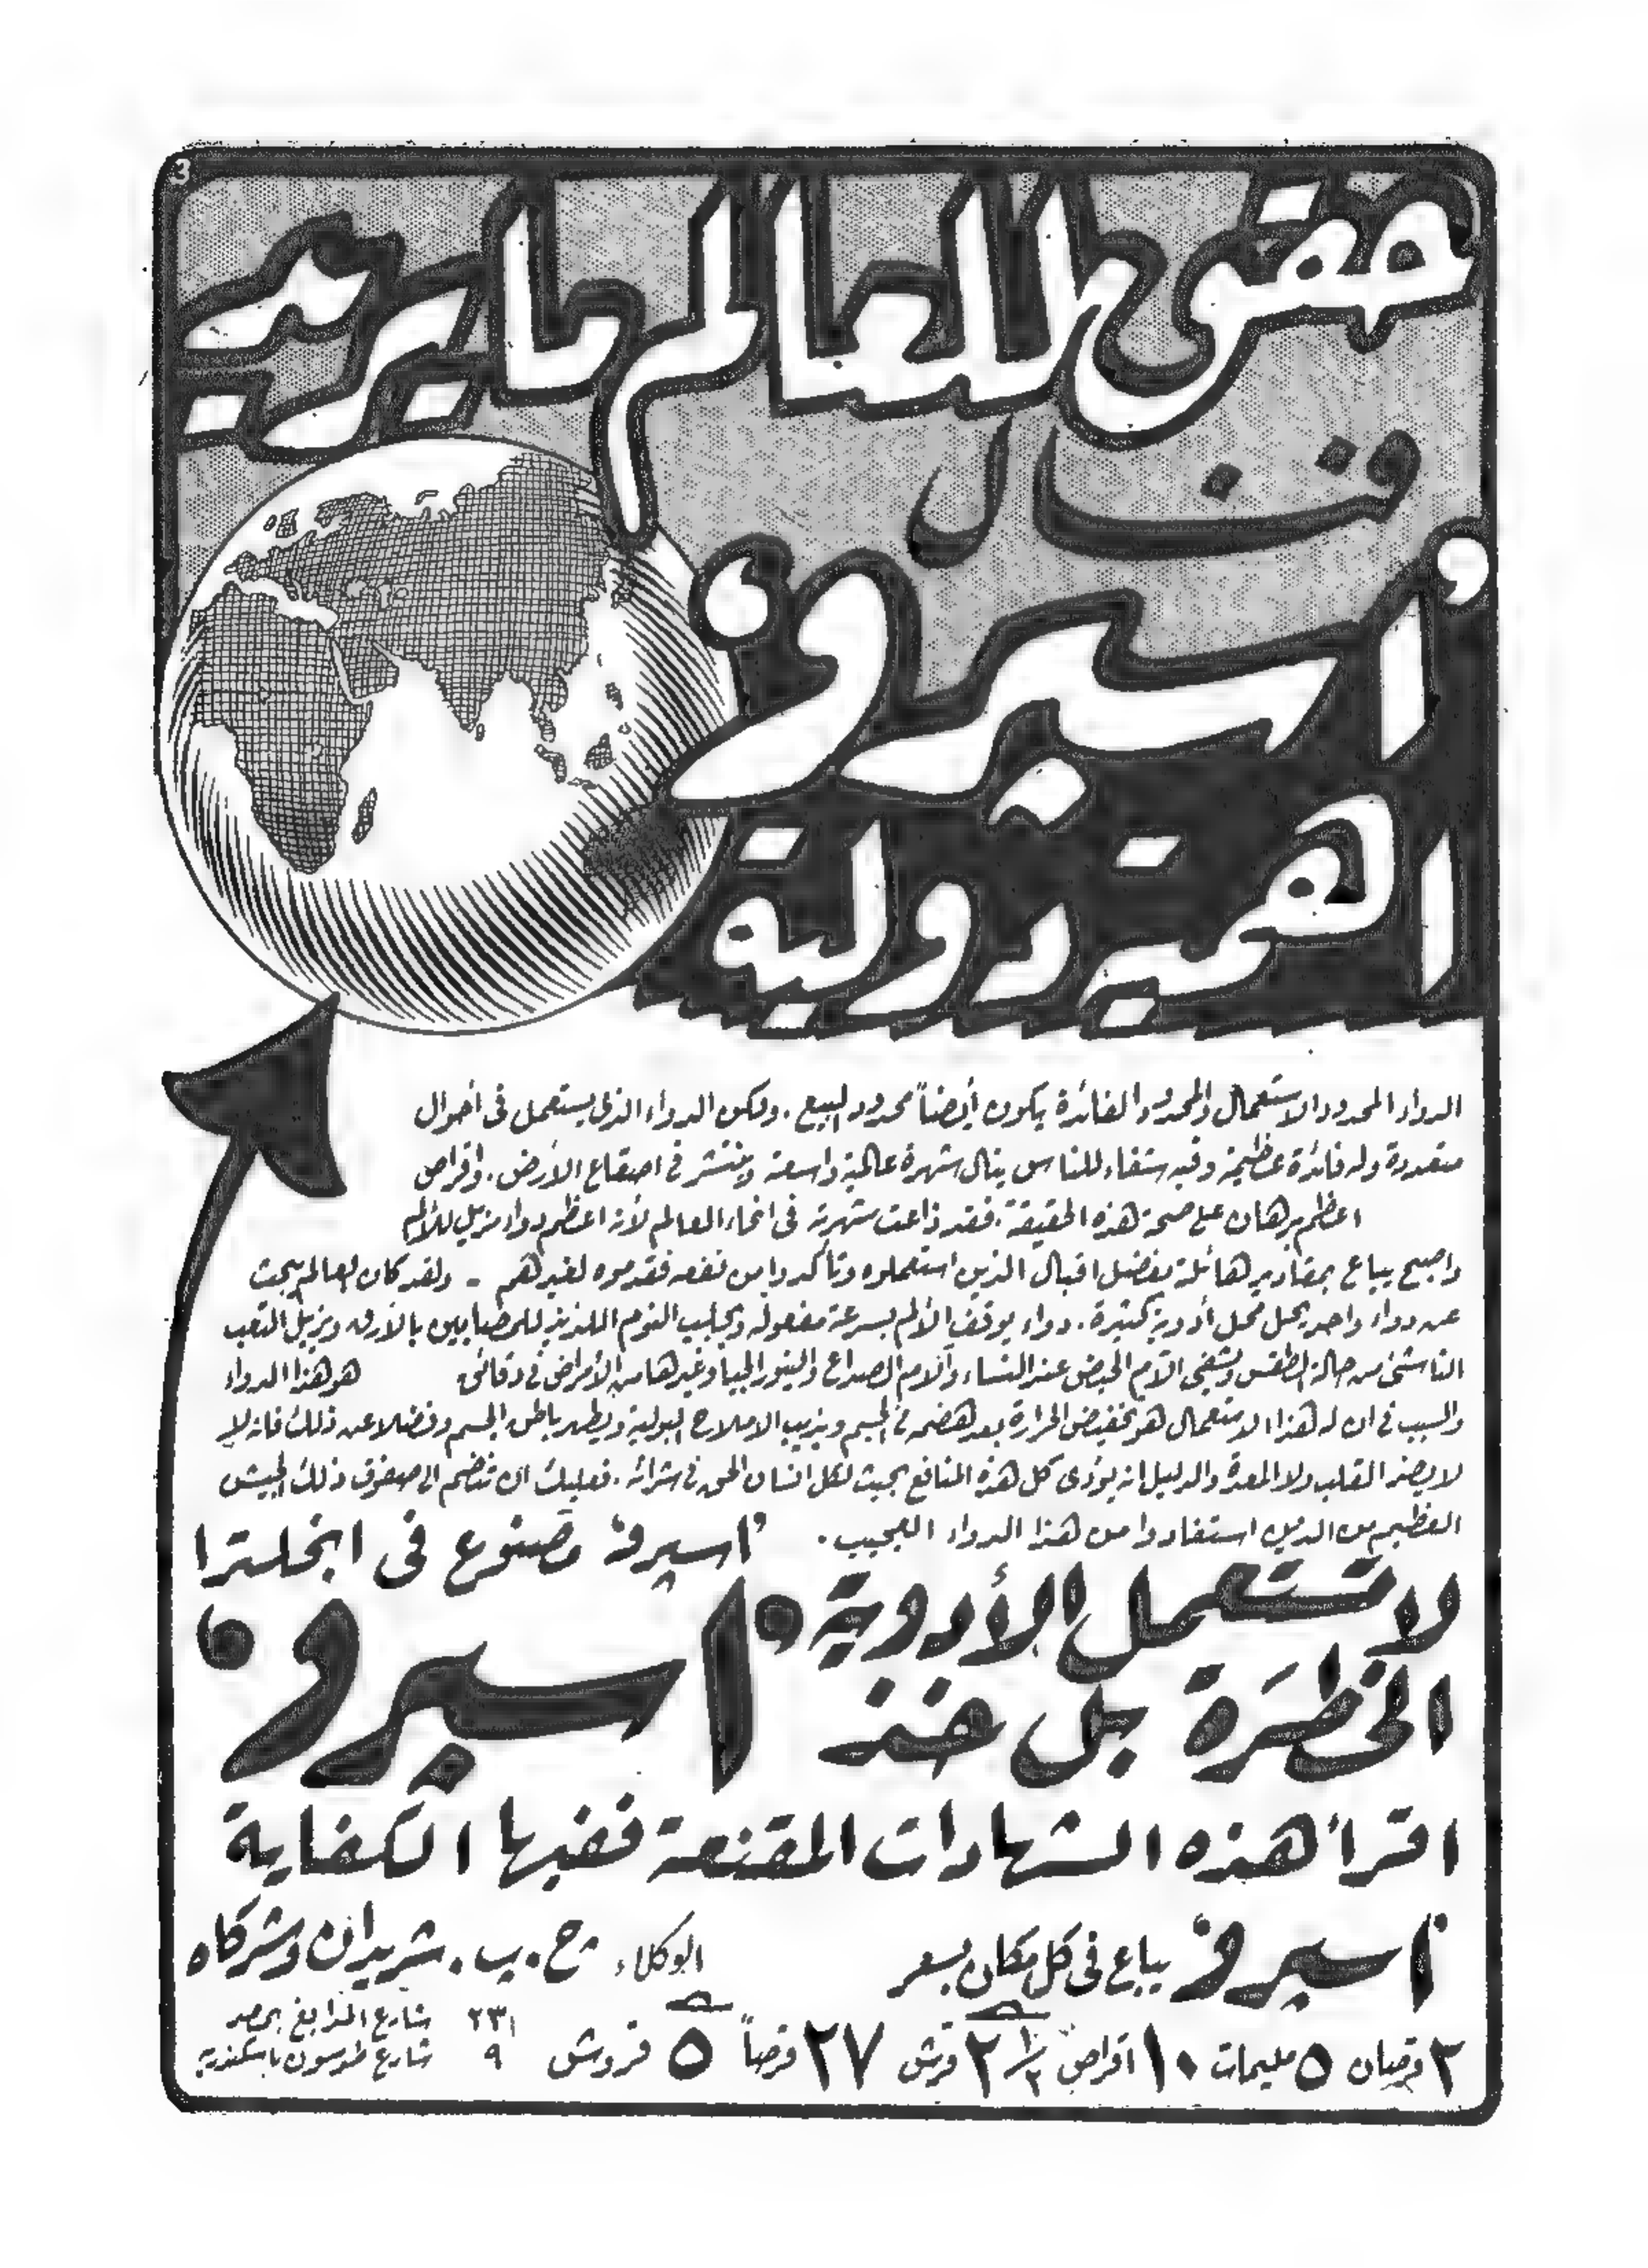 3
حقق للعالم ما يريد
فنال
'اسپرو'
اهمية دولية
الدواء المحدود الاستعمال والمحدود الفائدة يكون أيضاً محدود البيع . ولكن الدواء الذى يستعمل فى أحوال
متعددة وله فائدة عظيمة وفيه شفاء للناس ينال شهرة عالمية واسعة وينتشر فى اصقاع الأرض . واقراص
اعظم برهان على صحة هذه الحقيقة . فقد ذاعت شهرته فى انحاء العالم لأنه اعظم دواء مزيل للألم
واصبح يباع بمقادير هائلة بفضل اقبال الذين استعملوه وتأكدوا من نفعه فقدموه لغيرهم - ولقد كان العالم يبحث
عن دواء واحد يحل محل أدوية كثيرة . دواء يوقف الألم بسرعة مفعوله ويجلب النوم اللذيذ للمصابين بالأرق ويزيل التعب
الناشئ من حالة الطقس ويشفى آلام الحيض عند النساء وآلام الصداع والنيورالجيا وغيرها من الأمراض فى دقائق هو هذا الدواء
والسبب فى ان له هذا الاستعمال هو تخفيض الحرارة بعد هضمه فى الجسم ويذيب الاملاح البولية ويطهر باطن الجسم وفضلا عن ذلك فانه
لا يضر القلب ولا المعدة والدليل انه يؤدى كل هذه المنافع بحيث لكل انسان الحق فى شرائه . فعليك ان تنضم الى صفوف ذلك الجيش
العظيم من الذين استفادوا من هذا الدواء العجيب .
'اسپرو' مصنوع فى انجلترا
لا تستعمل الأدوية
الخطرة بل خذ
'اسپرو'
اقرأ هذه الشهادات المقنعة ففيها الكفاية
'اسپرو' يباع فى كل مكان بسعر
٢ قرصان ٥ مليمات ١٠ اقراص ٢ ١/٢ قرش ٢٧ قرصاً ٥ قروش
الوكلاء ح . پ . شريدان وشركاه
٢٣١ شارع المدابغ بمصر
٩ شارع طوسون باسكندرية